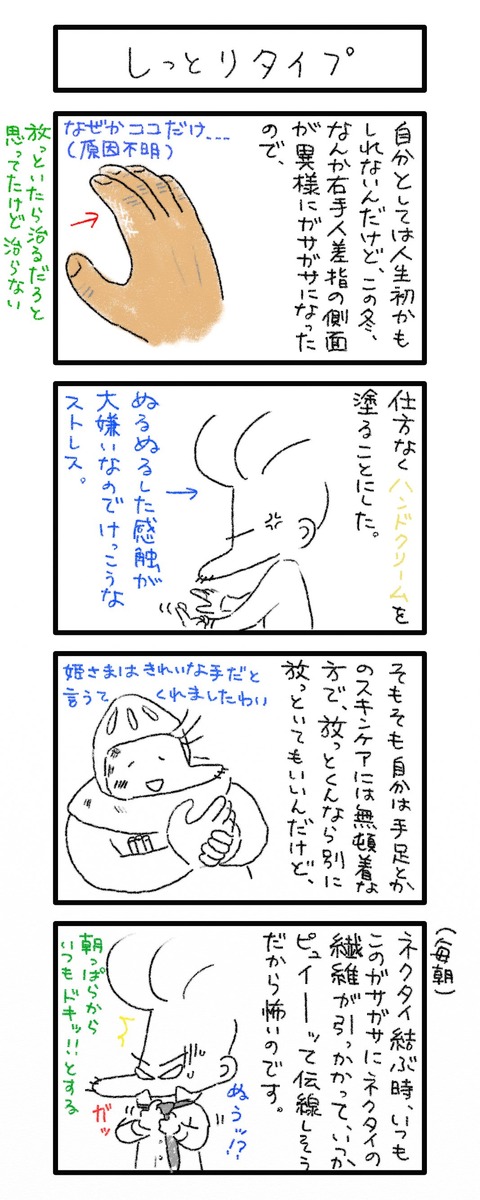 しっとりタイプ
自分としては人生初かも
しれないんだけど、この冬、
なんか右手人差指の側面
が異様にガサガサになった
ので、
なぜかココだけ…
(原因不明)
放っといたら治るだろと
思ってたけど治らない
仕方なくハンドクリームを
塗ることにした。
ぬるぬるした感触が
大嫌いなのでけっこうな
ストレス。
そもそも自分は手足とか
のスキンケアには無頓着な
方で、放っとくんなら別に
放っといてもいいんだけど、
姫さまはきれいな手だと
言うてくれましたわい
(毎朝)
ネクタイ結ぶ時、いつも
このガサガサにネクタイの
繊維が引っかかって、いつか
ピュイーーッて伝線しそう
だから怖いのです。
ぬうッ!?
ガッ
朝っぱらから
いつもドキッ!!とする